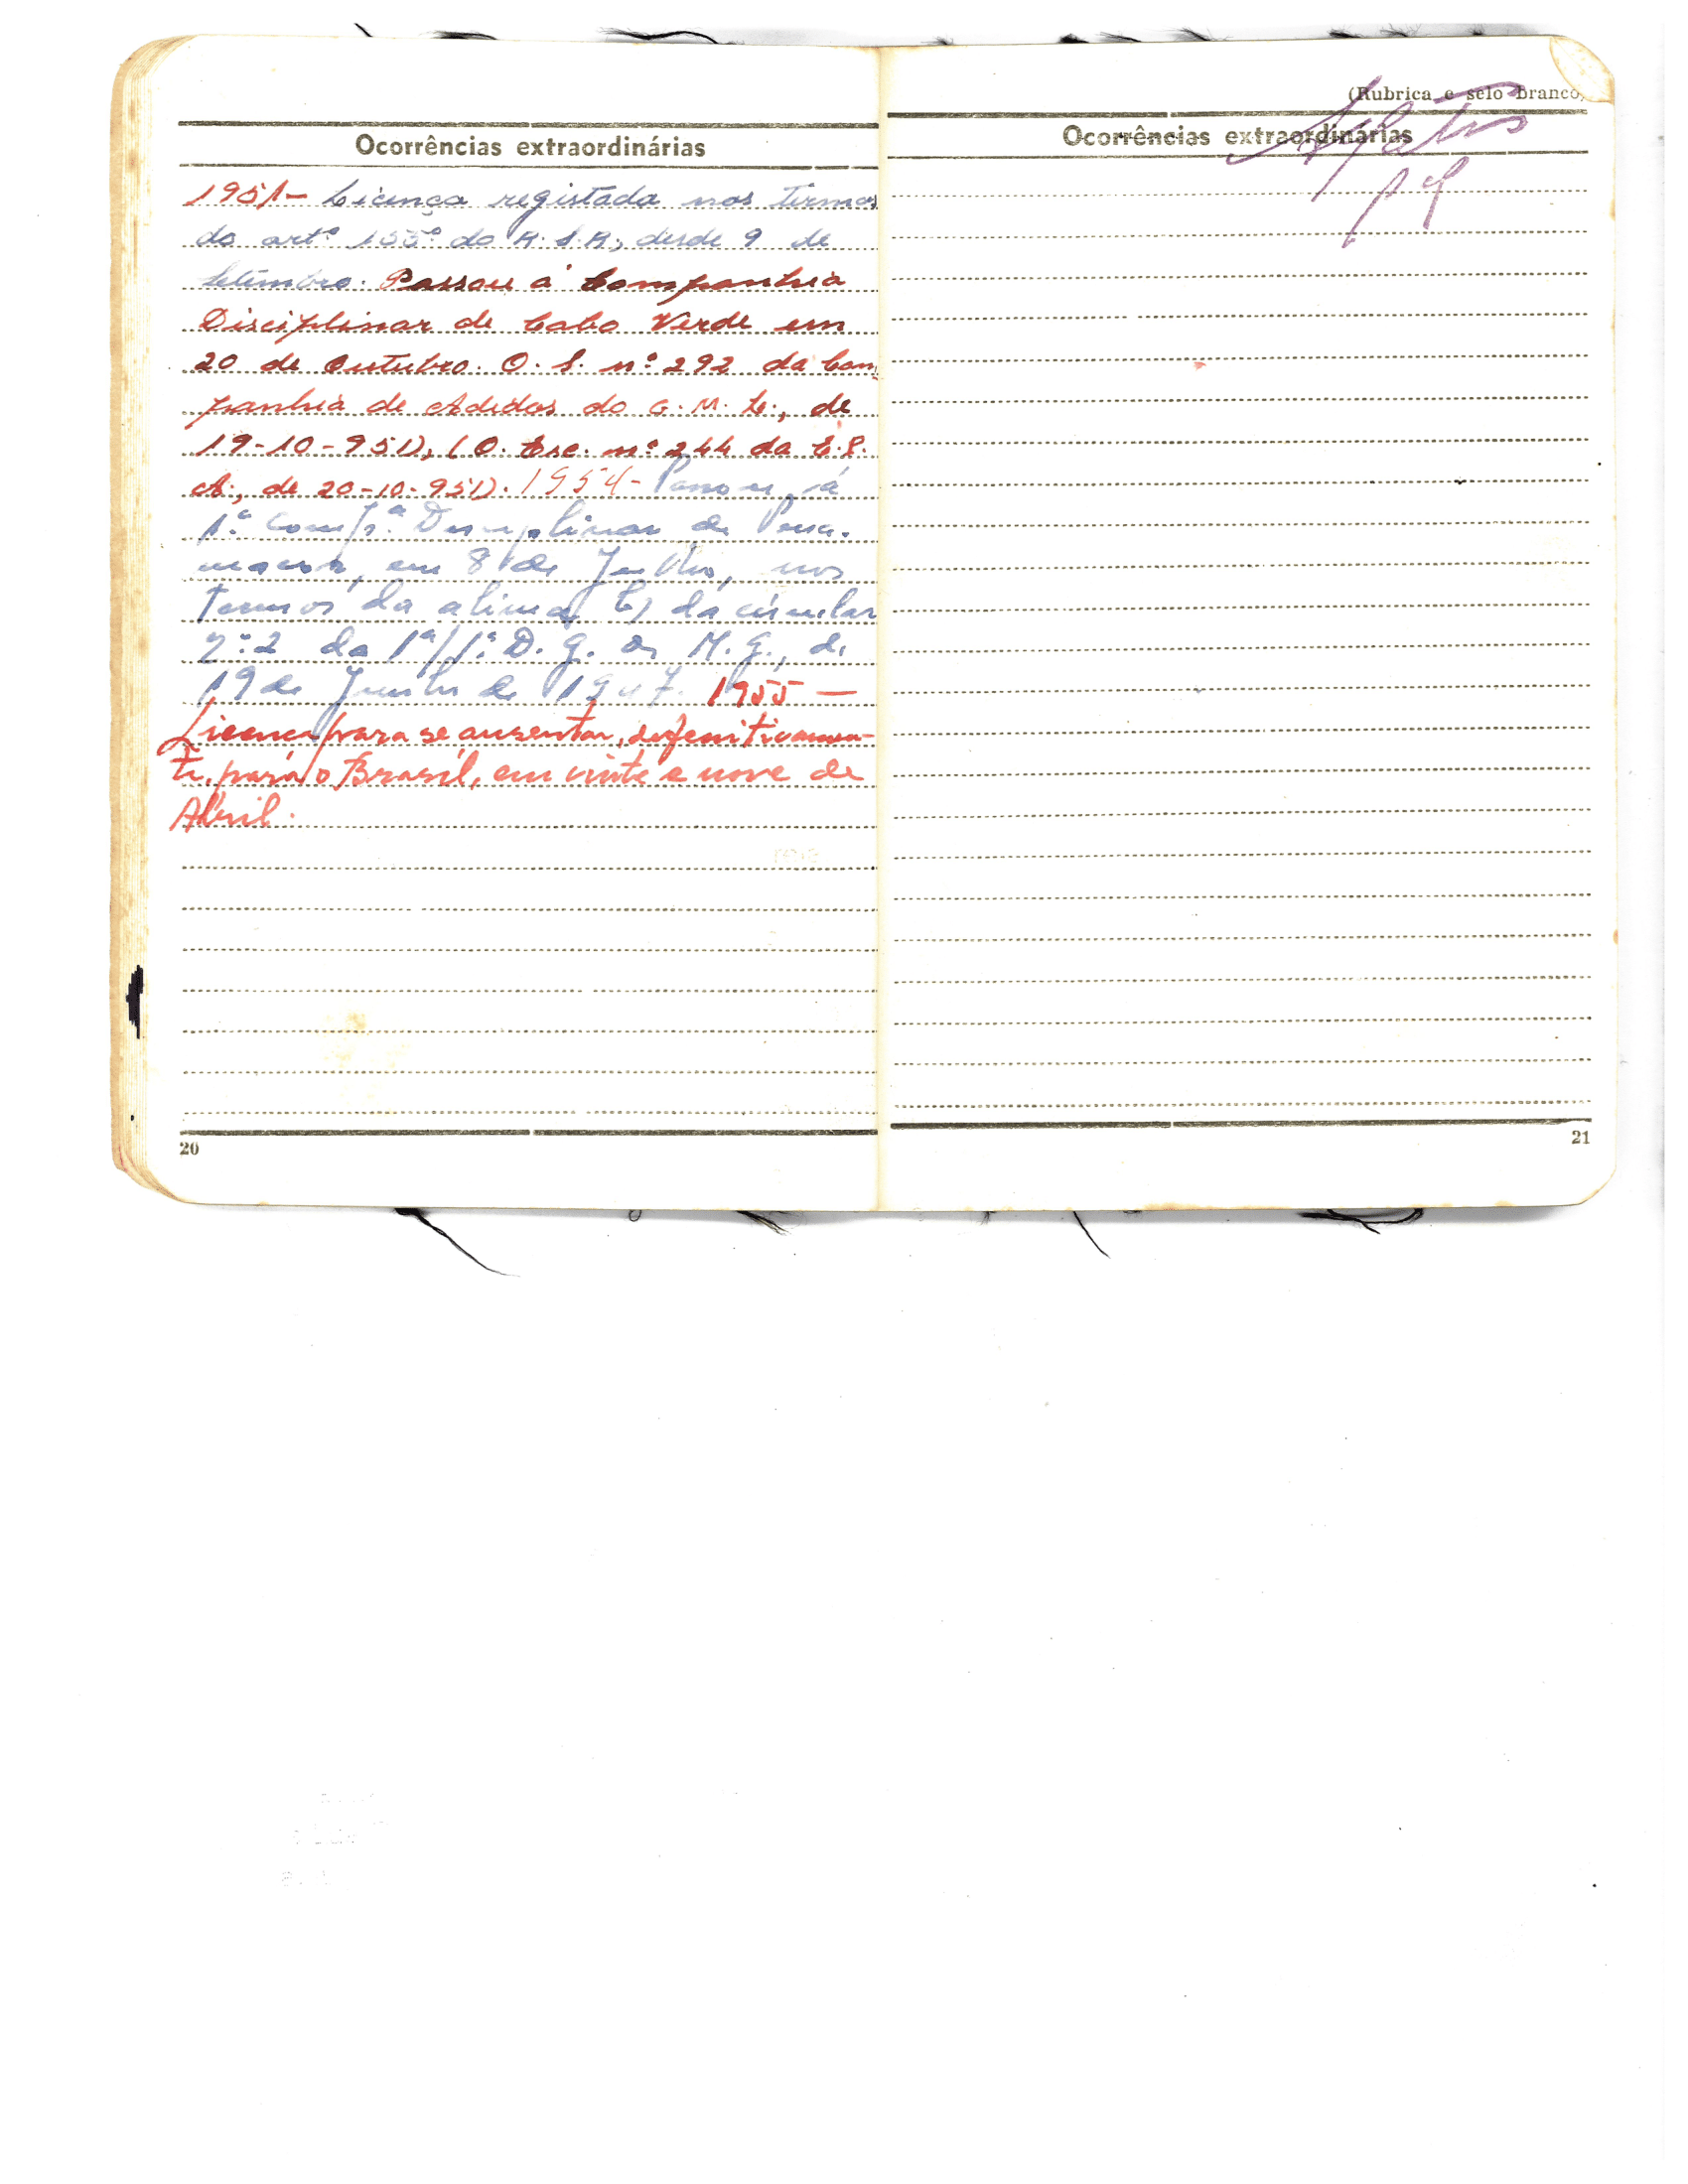 Ocorrências extraordinárias
1951- Licença registada nos termos
do artº 155º do R. S. R., desde 9 de
Setembro. Passou á Companhia
Disciplinar de Cabo Verde em
20 de Outubro. O. S. nº 292 da Com
panhia de Adidos do G. M. L., de
19-10-951), (O. Esc. nº 244 da E.P.
A., de 20-10-951). 1954- Passou, á
1.ª Comp.ª Disciplinar de Pena-
macor, em 8 de Julho, nos
termos da alinea b) da circular
nº 2 da 1ª/1ª D. G. do M. G., de
19 de Junho de 1947. 1955 —
Licença para se ausentar, defenitivamen-
te, para o Brasil, em vinte e nove de
Abril.
20
(Rubrica e selo branco)
Ocorrências extraordinárias
21